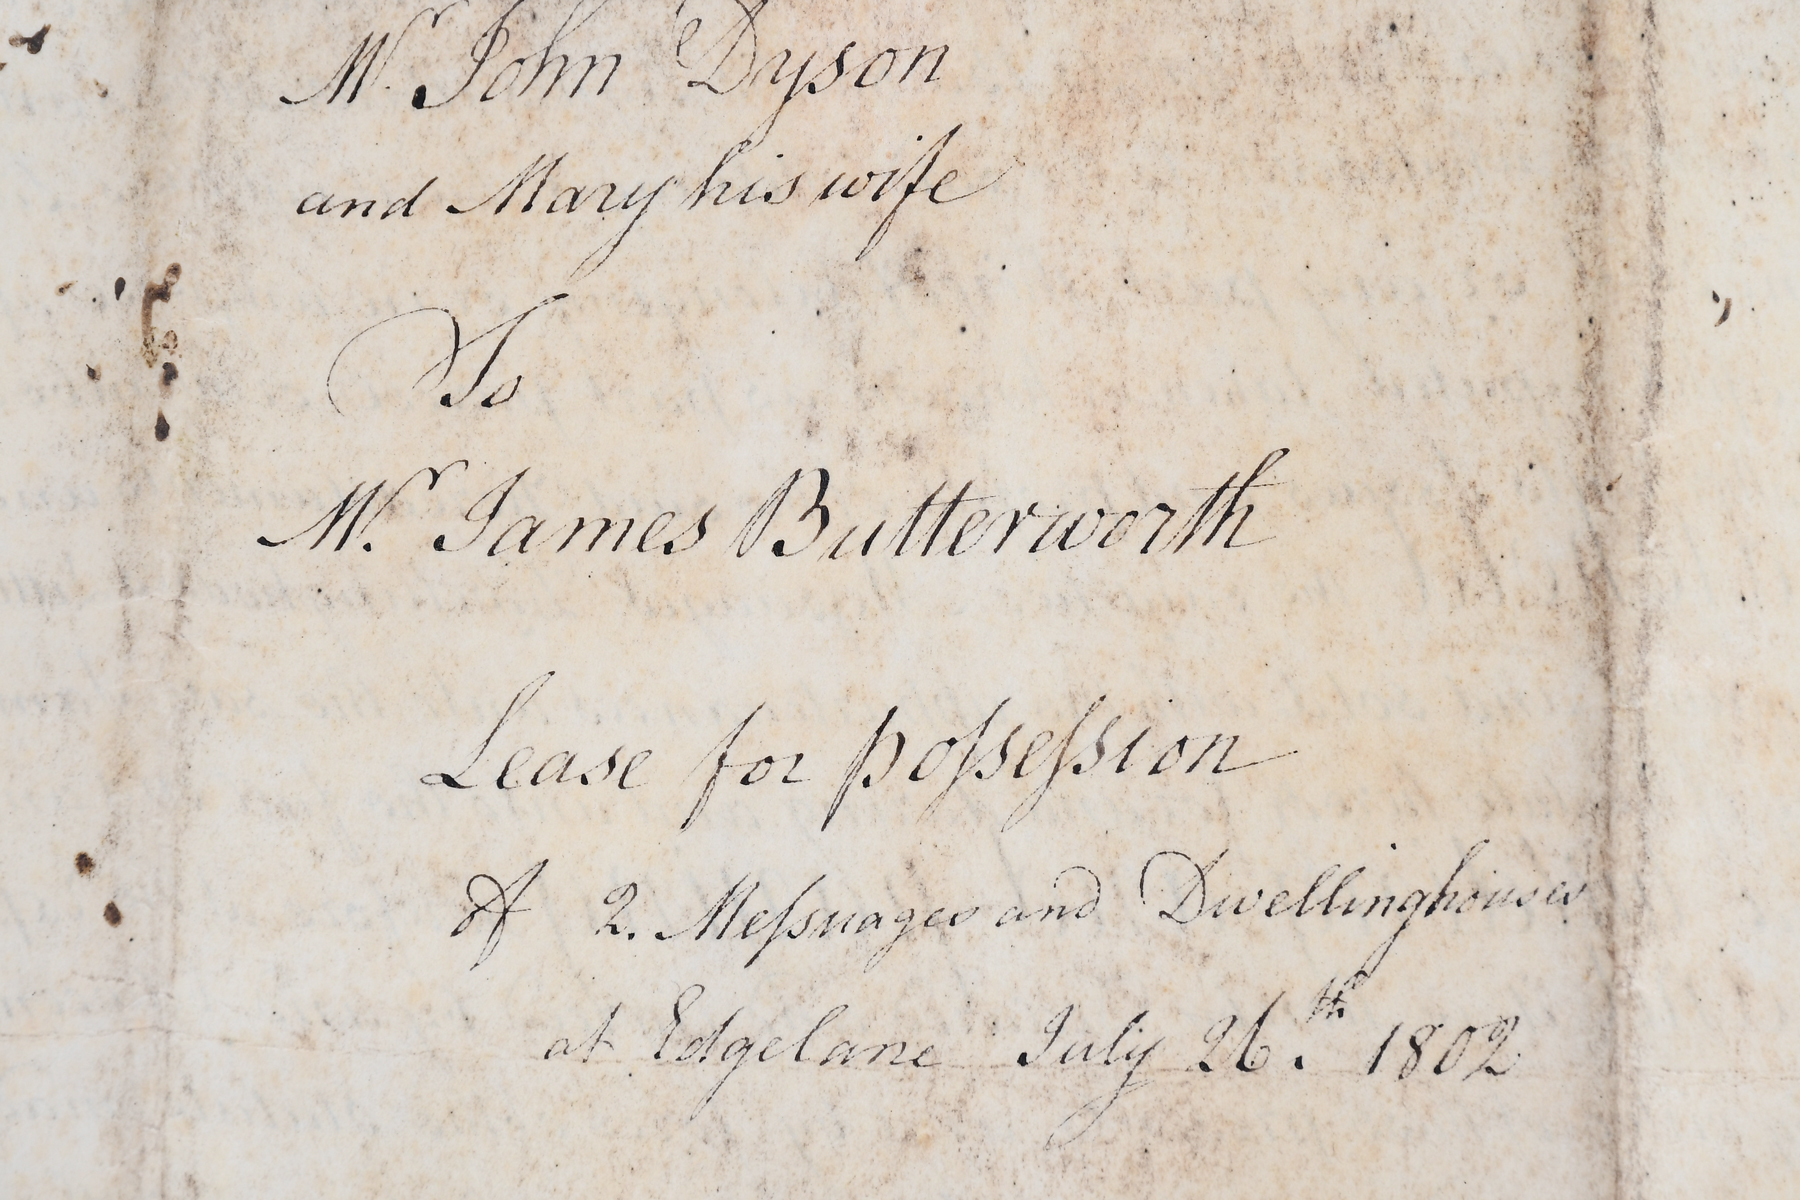 Mr. John Dyson
and Mary his wife
To
Mr. James Butterworth
Lease for poſseſsion
Of 2. Meſsuages and Dwellinghouses
at Edgelane July 26.th 1802